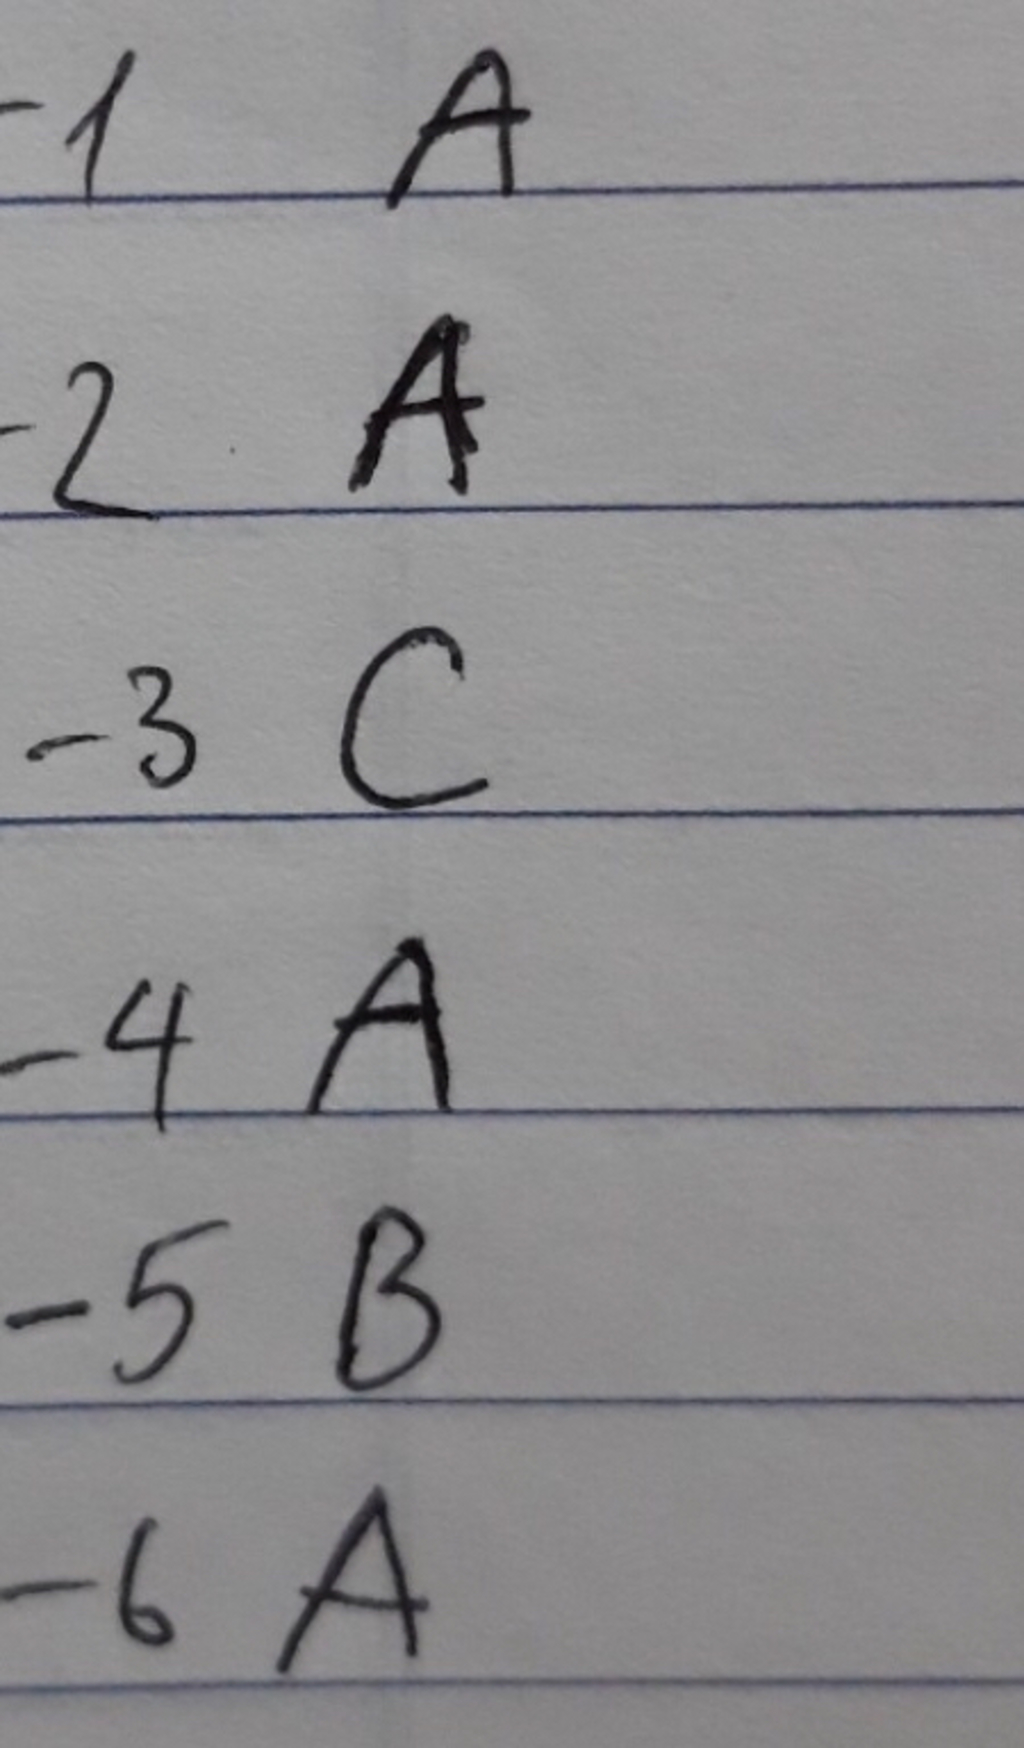 -1 A
-2 A
-3 C
-4 A
-5 B
-6 A